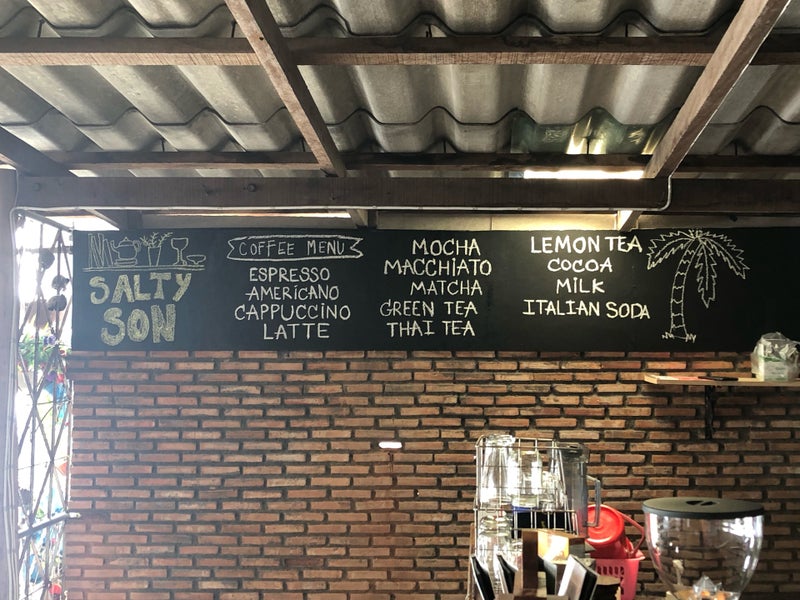 SALTY
SON
COFFEE MENU
ESPRESSO
AMERICANO
CAPPUCCINO
LATTE
MOCHA
MACCHIATO
MATCHA
GREEN TEA
THAI TEA
LEMON TEA
COCOA
MILK
ITALIAN SODA